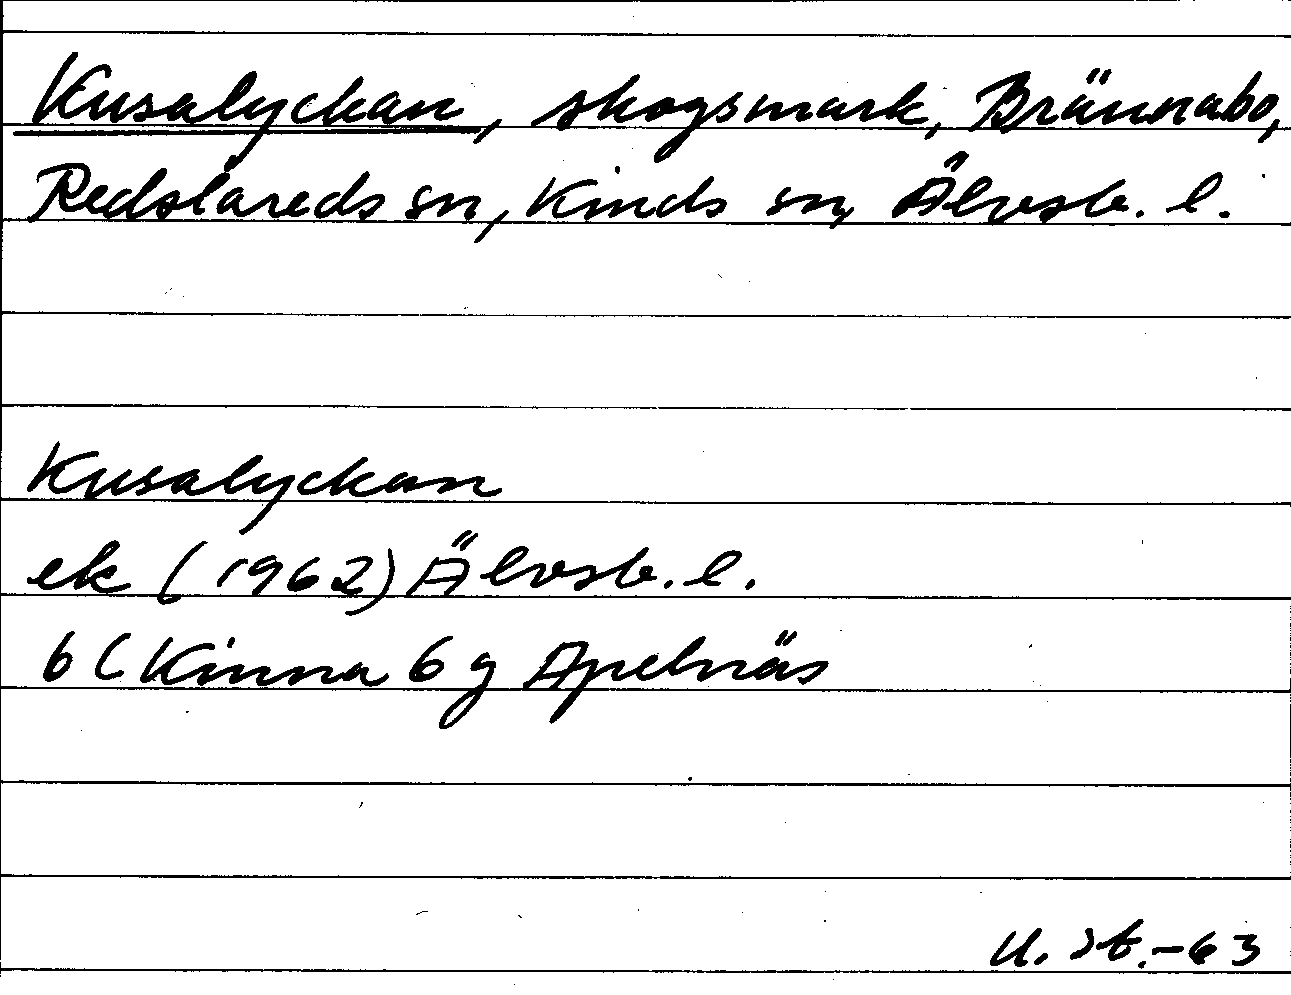 Kusalyckan, skogsmark, Brännabo,
Redslareds sn, Kinds sn, Älvsb. l.
Kusalyckan
ek (1962) Älvsb. l.
6 C Kinna 6 g Apelnäs
U. St.-63